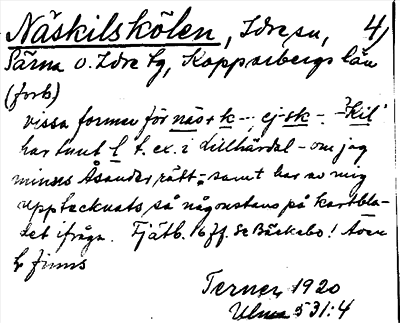 Näskilskölen, Idre sn, 4)
Särna o. Idre tg, Kopparbergs län
(forts)
vissa former för näs + k- ; ej sk-. -kil
har tunt l t. ex. i Lillhärdal - om jag
minns Åsander rätt - samt har av mig
upptecknats så någonstans på kartbla-
det ifråga. Fjätb. 16 ff. Se Bäckebo! Även
finns
Terner, 1920
Ulma § 31:4